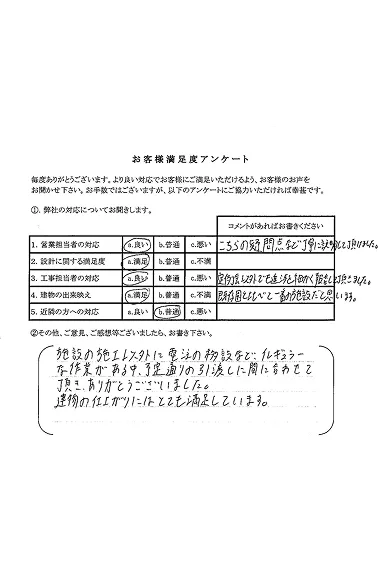 お客様満足度アンケート
毎度ありがとうございます。より良い対応でお客様にご満足いただけるよう、お客様のお声を
お聞かせ下さい。お手数ではございますが、以下のアンケートにご協力いただければ幸甚です。
①. 弊社の対応についてお聞きします。
コメントがあればお書きください
1. 営業担当者の対応 a.良い b.普通 c.悪い こちらの疑問点など丁寧に説明して頂けました。
2. 設計に関する満足度 a.満足 b.普通 c.不満
3. 工事担当者の対応 a.良い b.普通 c.悪い 定例会以外でも進捗を細かく報告して頂きました。
4. 建物の出来映え a.満足 b.普通 c.不満 既存園とくらべて一番の施設だと思います。
5. 近隣の方への対応 a.良い b.普通 c.悪い
②その他、ご意見、ご感想等ございましたら、お書き下さい。
施設の施工以外に電注の移設など、イレギュラー
な作業がある中、予定通りの引渡しに間に合わせて
頂き、ありがとうございました。
建物の仕上がりにはとても満足しています。